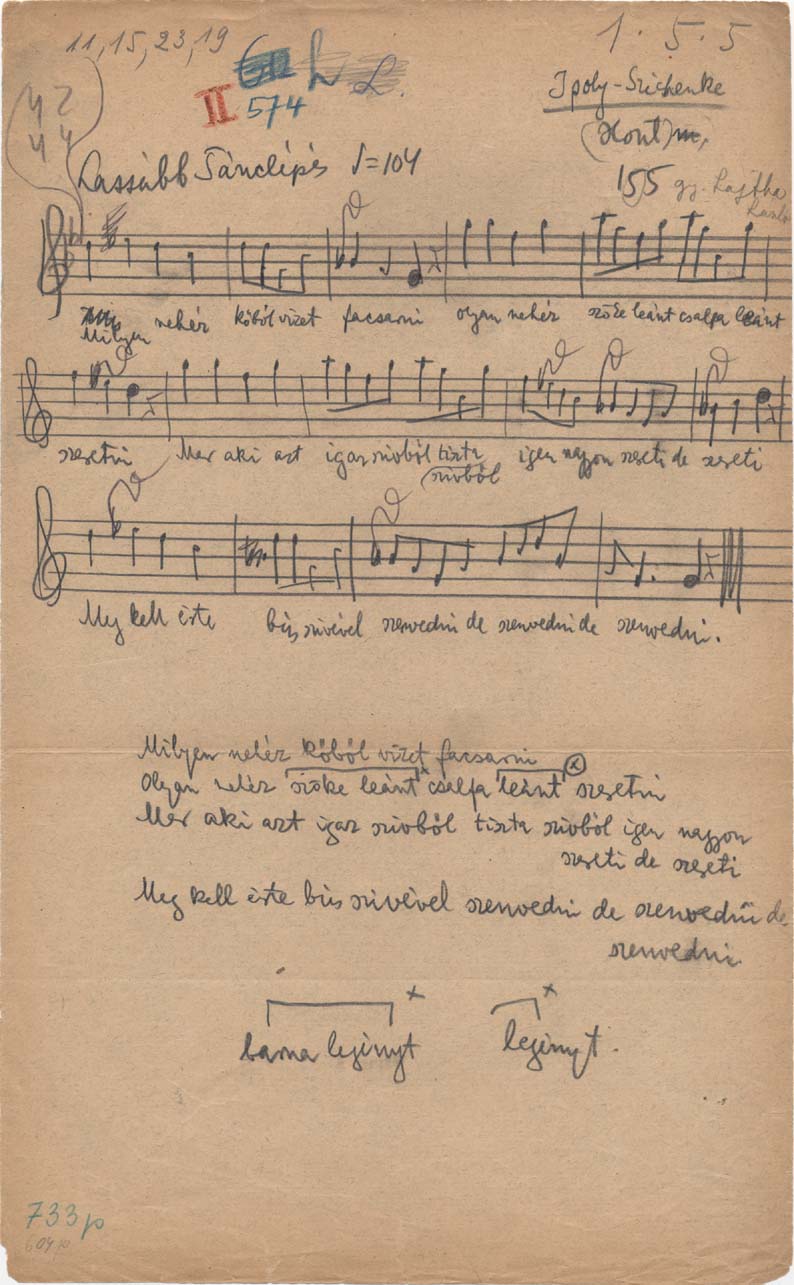 11, 15, 23, 19
1 . 5 . 5
L L.
II 574
Ipoly-Szichenke
(Hont) m,
42
44
Lassúbb Tánclépés ♩=104
155 gy. Lajtha
László
Milyen nehéz kőből vizet facsarni olyan nehéz szőke leánt csalfa leánt
szeretni Mer aki azt igaz szivből tiszta igen nagyon szereti de szereti
szivből
Meg kell érte bús szivével szenvedni de szenvedni de szenvedni.
Milyen nehéz kőből vizet facsarni
Olyan nehéz szőke leánt csalfa leánt x szeretni
Mer aki azt igaz szivből tiszta szivből igen nagyon
szereti de szereti
Meg kell érte bús szivével szenvedni de szenvedni de
szenvedni.
x x
barna legényt legényt.
733p
604 p